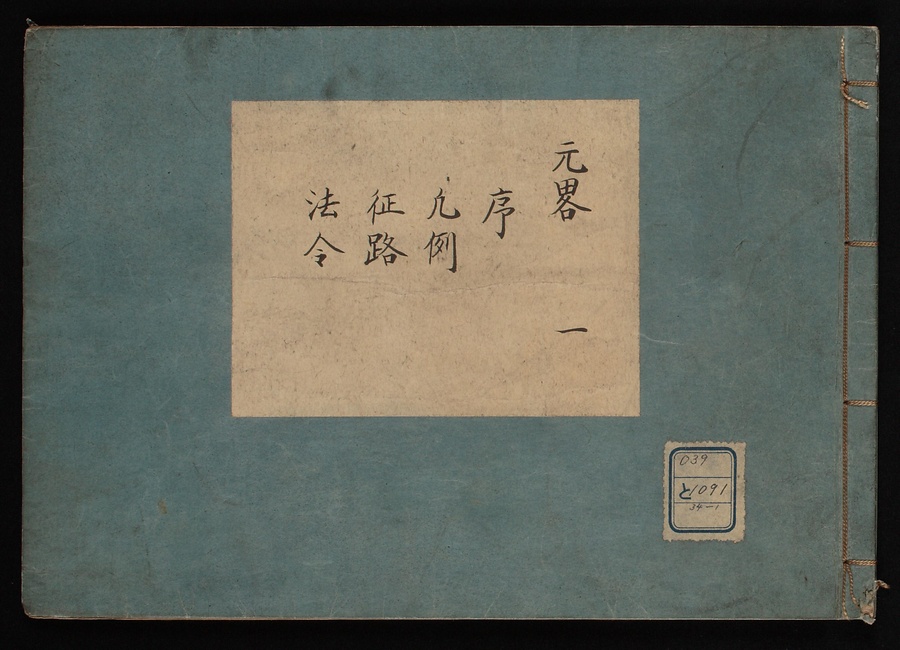 元畧 一
序
凡例
征路
法令
039
と1091
34-1